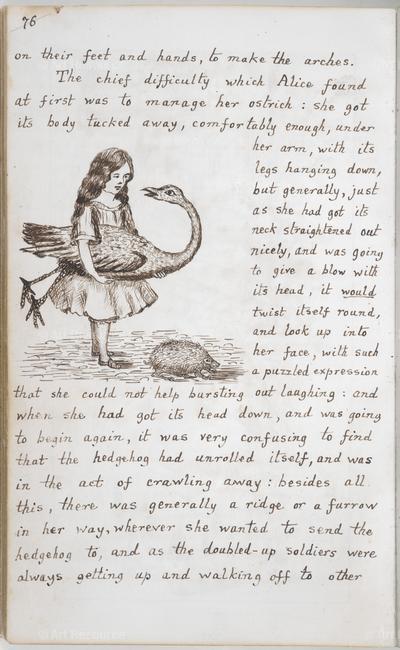 76
on their feet and hands, to make the arches.
The chief difficulty which Alice found
at first was to manage her ostrich : she got
its body tucked away, comfortably enough, under
her arm, with its
legs hanging down,
but generally, just
as she had got its
neck straightened out
nicely, and was going
to give a blow with
its head, it would
twist itself round,
and look up into
her face, with such
a puzzled expression
that she could not help bursting out laughing : and
when she had got its head down, and was going
to begin again, it was very confusing to find
that the hedgehog had unrolled itself, and was
in the act of crawling away : besides all
this, there was generally a ridge or a furrow
in her way, wherever she wanted to send the
hedgehog to, and as the doubled-up soldiers were
always getting up and walking off to other
© Art Resource